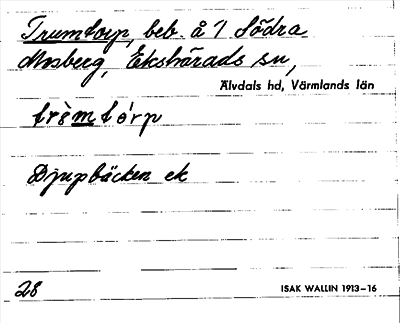 Trumtorp, beb. å 1 Södra
Mosberg, Ekshärads sn,
Älvdals hd, Värmlands län
Djupbäcken ek
28
ISAK WALLIN 1913–16